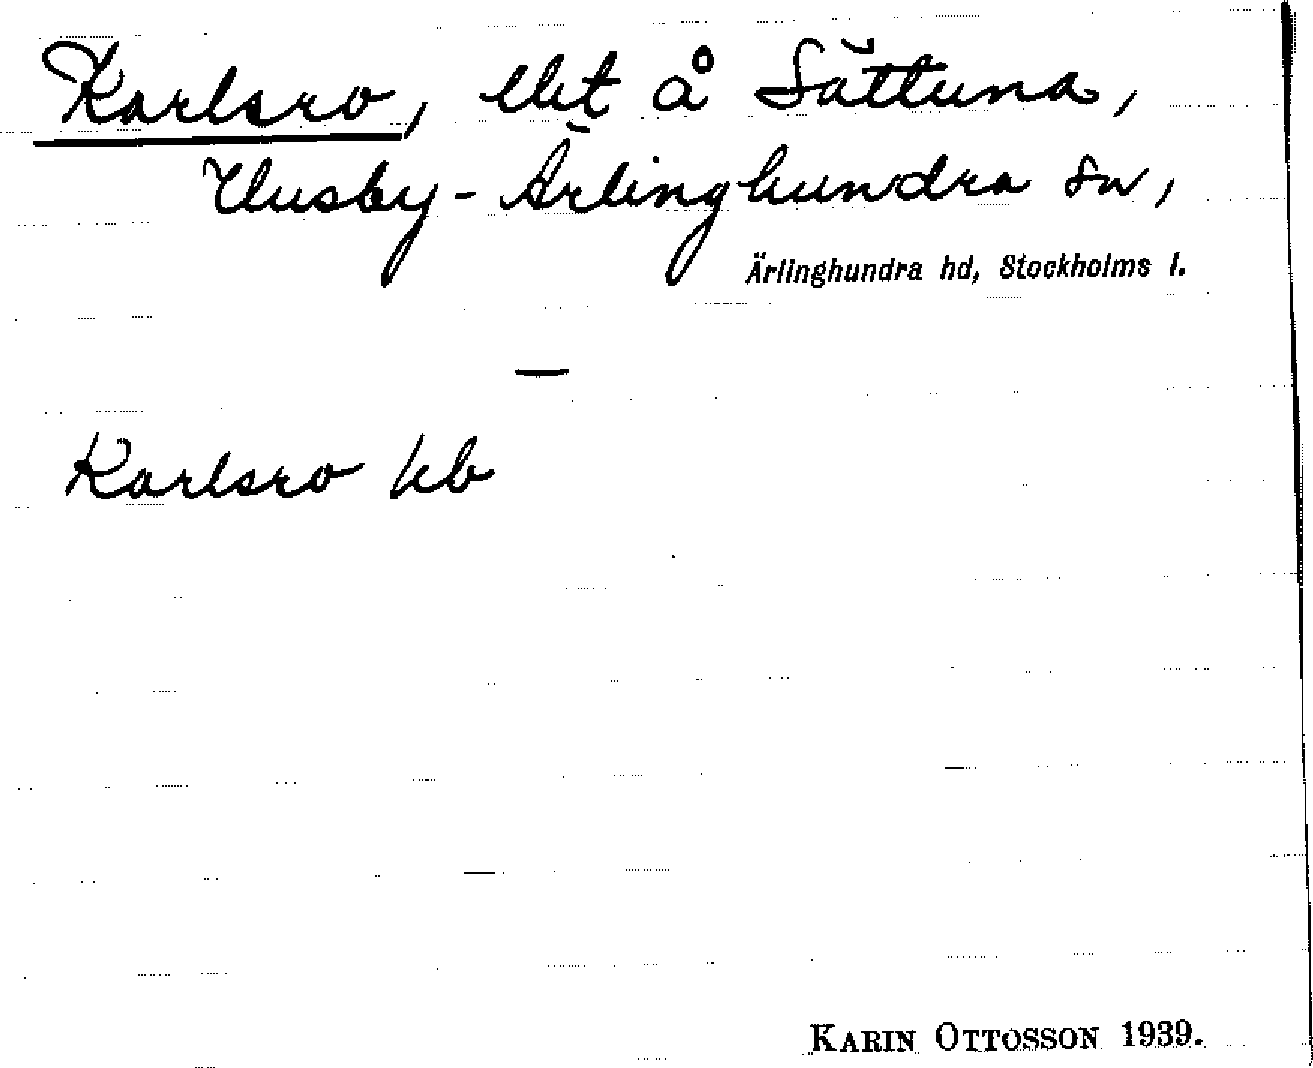 Karlsro, lht å Sättuna,
Husby-Ärlinghundra sn,
Ärlinghundra hd, Stockholms l.
—
Karlsro kb
KARIN OTTOSSON 1939.